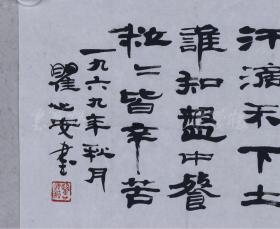 汗滴禾下土
誰知盤中餐
粒〻皆辛苦
一九六九年秋月
瞿心安書